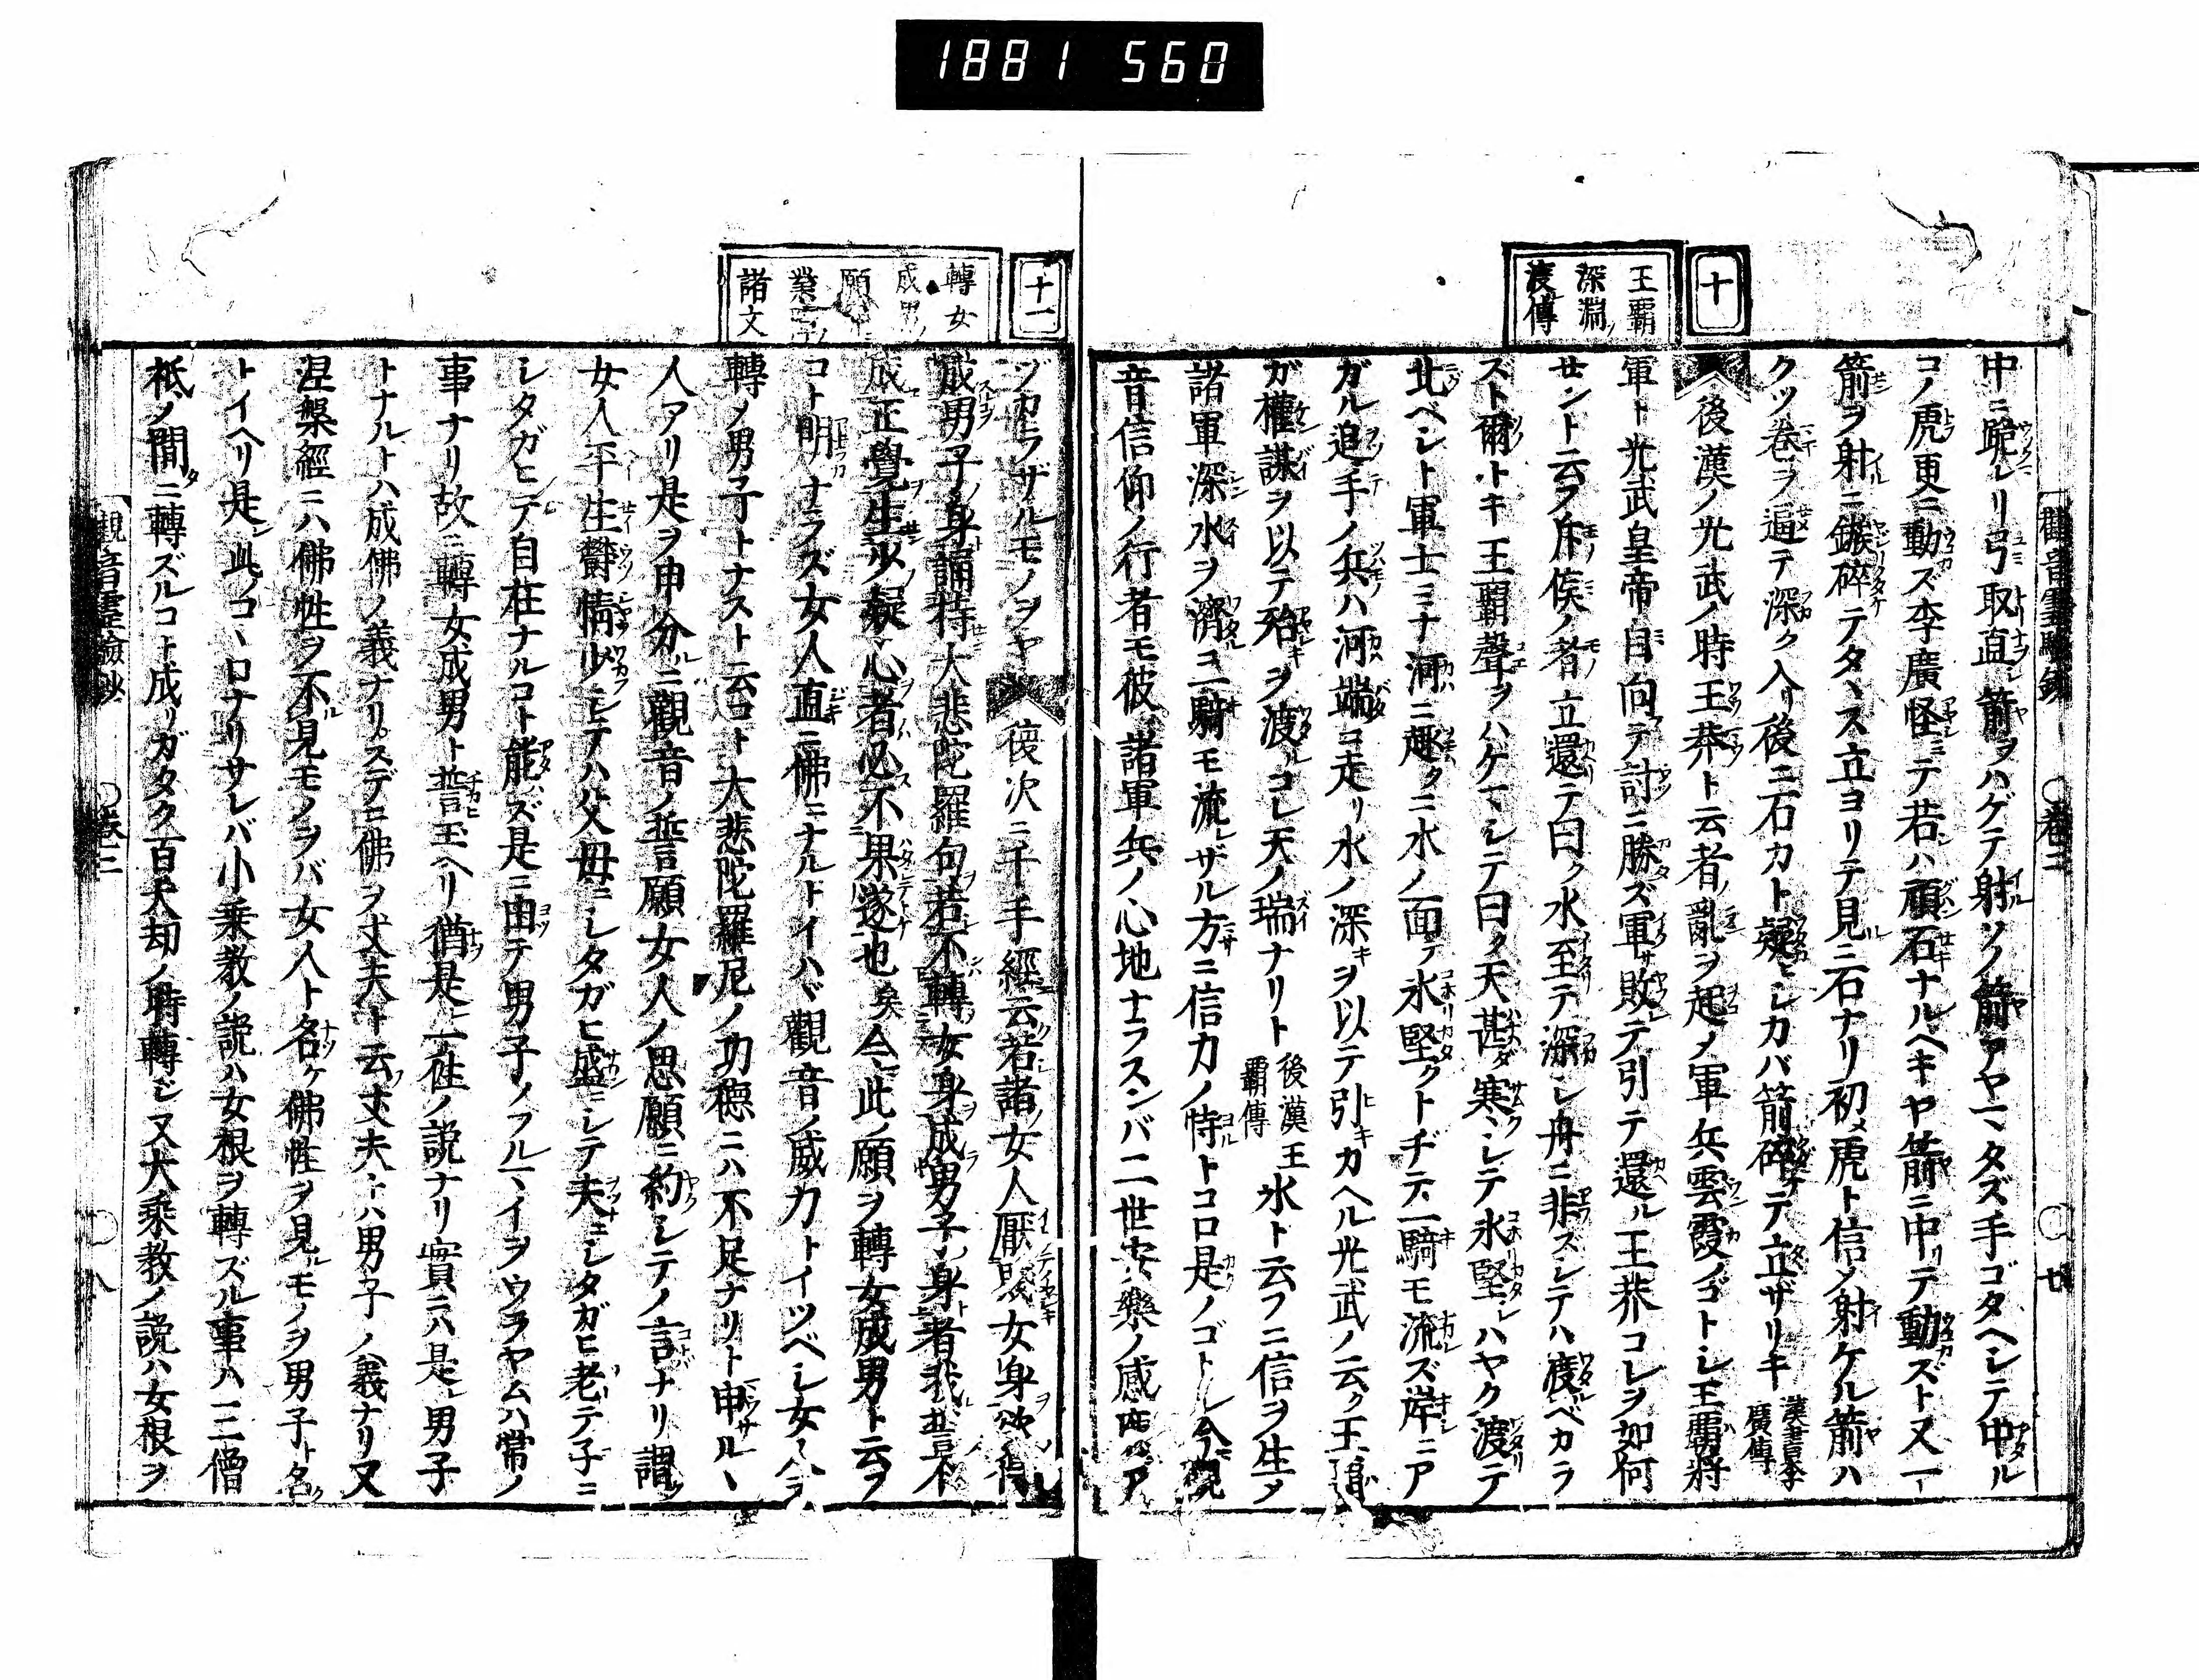 1881 560
十
王覇
深淵ノ
渡傳
觀音靈驗鈔 ○卷二 ○廿
中ニ跪レリ弓取直シ箭ヲハゲテ射ルソノ箭アヤマタズ手ゴタヘシテ中ル
コノ虎更ニ動ズ李廣怪ミテ若シハ頑石ナルヘキヤ箭ニ中リテ動ズト又一
箭ヲ射ニ鏃碎テタヽズ立ヨリテ見ルニ石ナリ初メ虎ト信メ射ケル箭ハ
クツ卷ヲ逼テ深ク入リ後ニ石カト疑ヒシカバ箭碎テ立ザリキ 漢書李廣傳
後漢ノ光武ノ時王莽ト云者ノ亂ヲ起メ軍兵雲霞ノゴトシ王覇將
軍ト光武皇帝ト自向テ討ニ勝ズ軍敗テ引テ還ル王莽コレヲ如何
セント云フ斥候ノ者立還テ曰ク水至テ深シ舟ニ非スシテハ渡ベカラ
スト爾トキ王覇聲ヲハゲマシテ曰ク天甚ダ寒シテ氷堅シハヤク渡テ
北ベシト軍士ミナ河ニ趣クニ水ノ面テ氷堅クトヂテ一騎モ流ズ岸ニア
ガル追手ノ兵ハ河端ニ走リ水ノ深キヲ以テ引キカヘル光武ノ云ク王覇
ガ權謀ヲ以テ殆キヲ渡ルコレ天ノ瑞ナリト 後漢王覇傳 氷ト云フニ信ヲ生メ
諸軍深水ヲ濟ニ一騎モ流レザル方ニ信力ノ恃トコロ是ノゴトシ今觀
音信仰ノ行者モ彼ノ諸軍兵ノ心地ナラスンバ二世安樂ノ感應ア
十一
轉女
成男ノ
願
諸文
ヅカラザルモノヲヤ 復次ニ千手經云若諸ノ女人厭賤女身欲得
成男子ノ身誦持大悲陀羅尼句若不轉女身成男子身者我誓不
成正覺生少疑心者必不果遂也矣今此ノ願ヲ轉女成男ト云フ
コト明ナラズ女人直ニ佛ニナルトイハヾ觀音ノ威力トイツベシ女人ヲ
轉ノ男子トナスト云コト大悲陀羅尼ノ功德ニハ不足ナリト申サルヽ
人アリ是ヲ申分ルニ觀音ノ誓願女人ノ思願ニ約シテノ言ナリ謂ク
女人平生欝情少シテハ父母ニシタガヒ盛ニシテ夫ニシタガヒ老テ子ニ
シタガヒテ自在ナルコト能ズ是ニ由テ男子ノフルマイヲウラヤムハ常ノ
事ナリ故ニ轉女成男ト誓玉ヘリ猶是一徃ノ説ナリ實ニハ是レ男子
トナルトハ成佛ノ義ナリスデニ佛ヲ丈夫ト云フ丈夫トハ男子ノ義ナリ又
涅槃經ニハ佛性ヲ不見モノヲバ女人ト名ケ佛性ヲ見ルモノヲ男子ト名ク
トイヘリ是レ此ノコヽロナリサレバ小乘教ノ説ハ女根ヲ轉ズル事ハ三僧
祇ノ間ニ轉ズルコト成リガタク百大劫ノ時轉ジ又大乘教ノ説ハ女根ヲ
觀音靈驗鈔 ○卷二 ○八